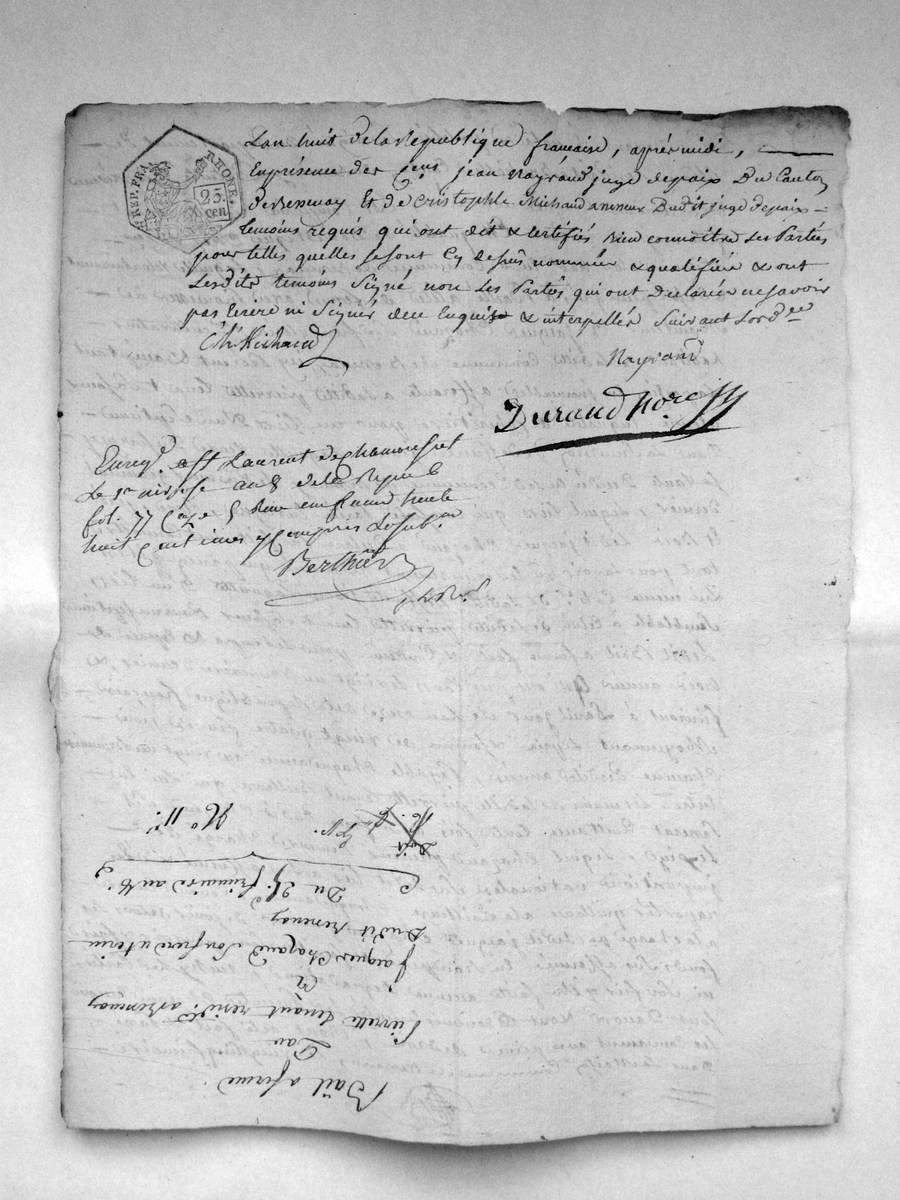 REP. FRA.
RHONE.
25.
cen
L'an huit de la Republique francaise, après midi,
En présence des Cens. jean Nayrand juge de paix Du Canton
de Bessenay Et de Cristophle Michaud Dudit juge de paix
temoins réqués qui ont dit & certifiés bien connoitre les Parties
pour telles quelles se sont Cy dessus nommées & qualifiée & ont
Lesdits temoins Signé non les Parties qui ont Declarées ne savoir
pas Ecrire ni Signer de ce Enquis & interpellés Suivant Lordce
Ch. Michaud
Nayrand
Durand Nore
Enregt. à St Laurent de chamousset
Le 1er nivose an 8 de la Repub
fol. 77 Cse 5 Reçu un franc trente
huit Centimes y Compris Le sub.on
Berthier
Bail a ferme
Par
Pierrette résidte. a Bessenay
A
jacques Chazaud Son frere uterin
Dudit Bessenay
Du 25 frimaire an 8
Doit
No 11